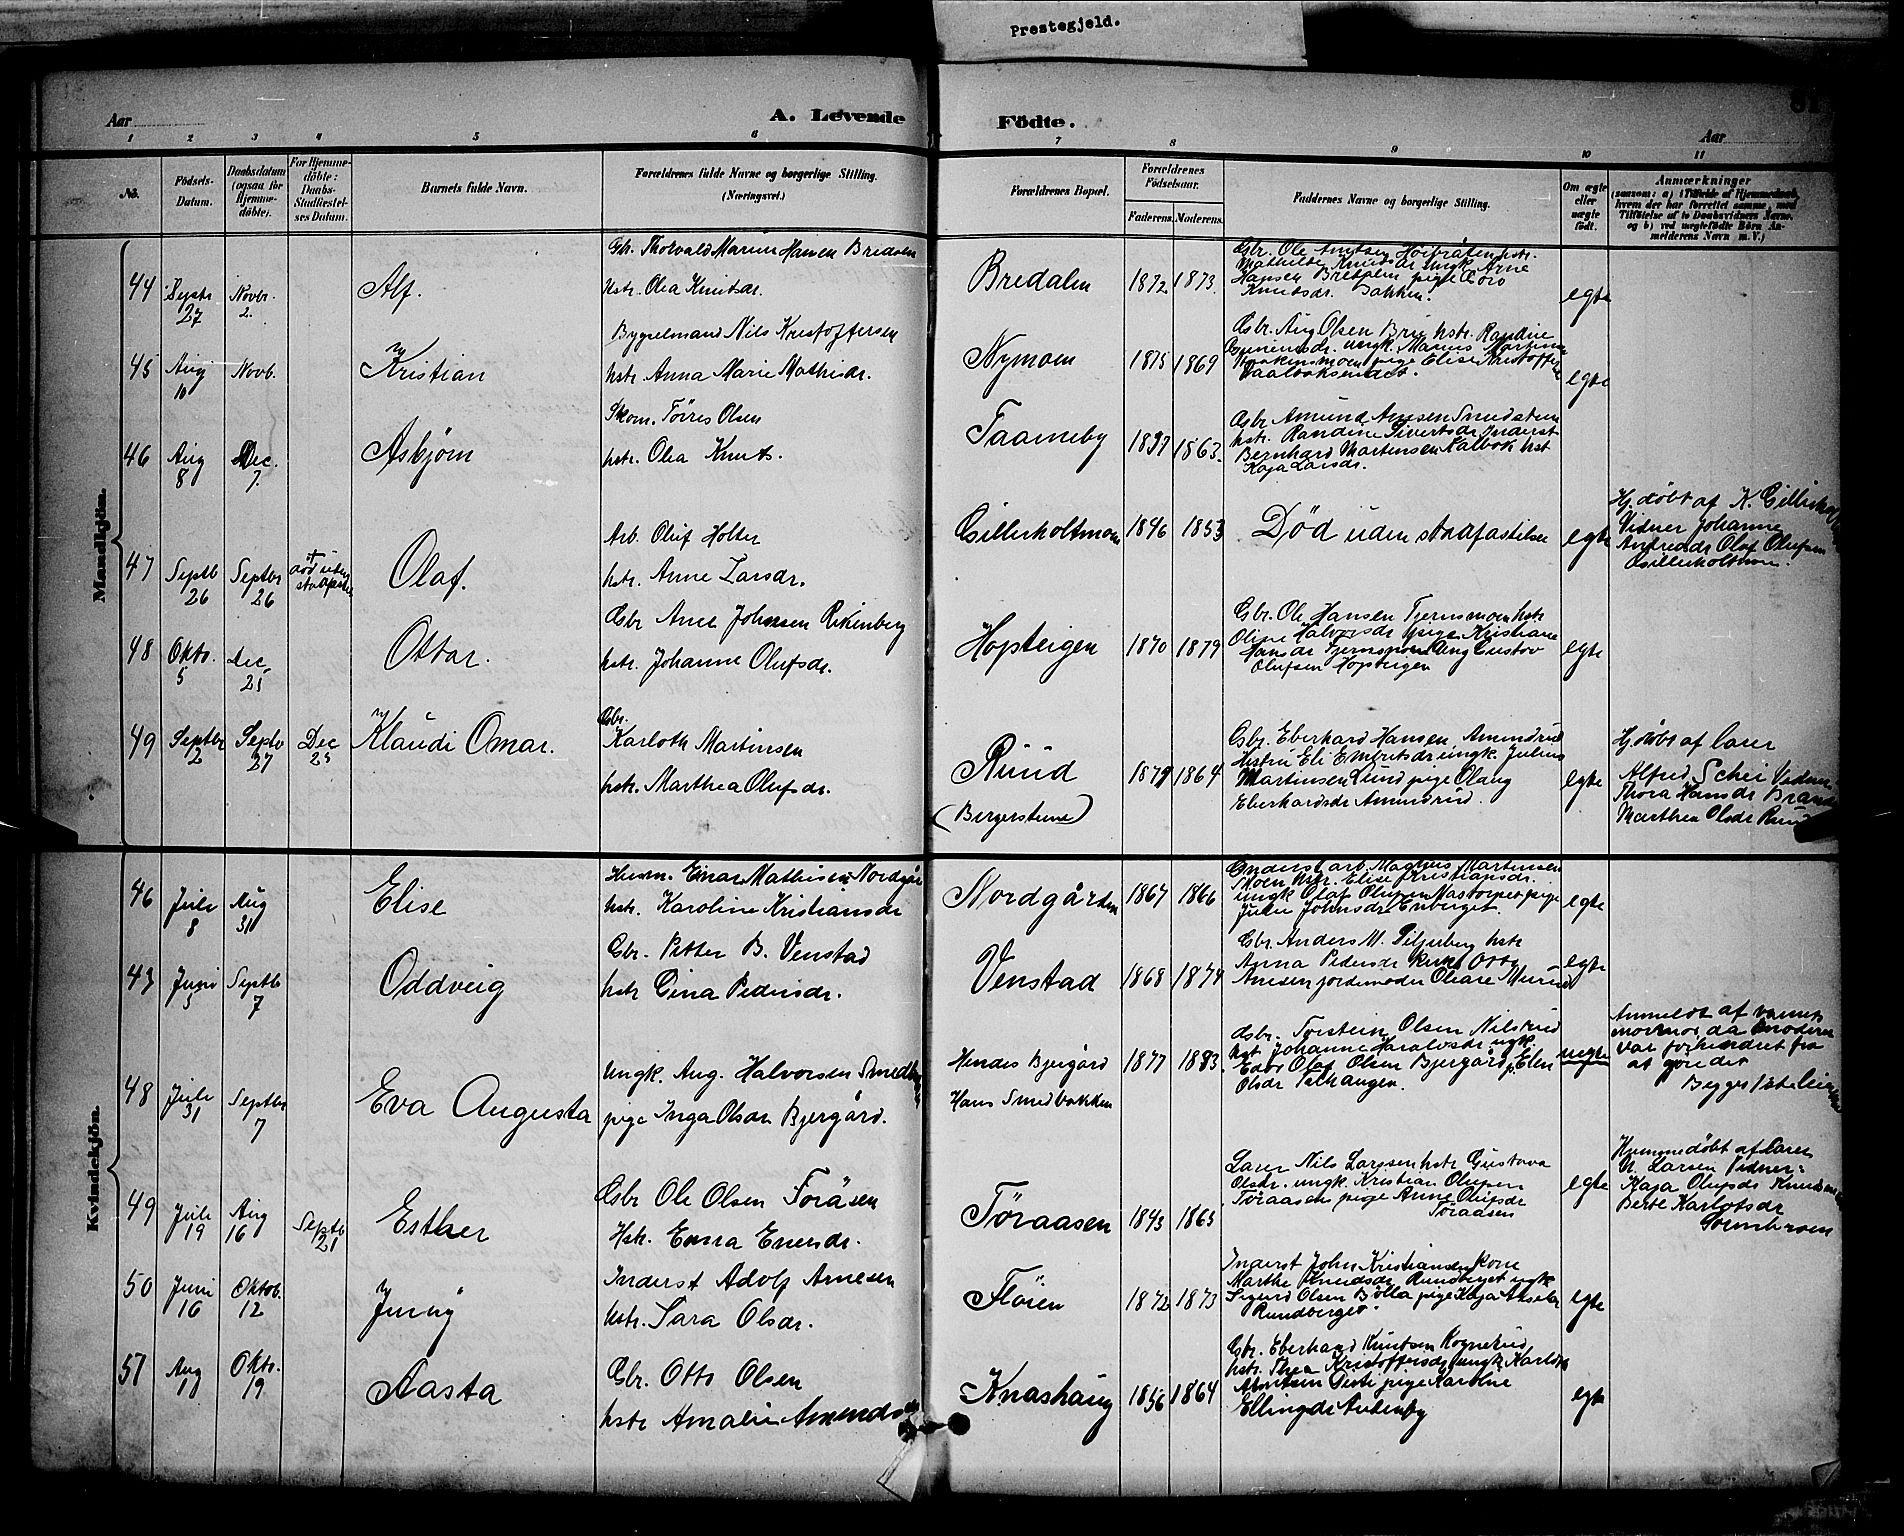 Prestegjeld.
Aar
A. Levende
Fødte.
Aar
1 2 3 4 5 6 7 8 9 10 11
No.
Fødsels-
Datum.
Daabsdatum
(ogsaa for
Hjemme-
døbte).
For Hjemme-
døbte:
Daabs-
Stadfæstel-
ses Datum.
Barnets fulde Navn.
Forældrenes fulde Navne og borgerlige Stilling.
(Næringsvei.)
Forældrenes Bopæl.
Forældrenes
Fødselsaar.
Faderens. Moderens.
Faddernes Navne og borgerlige Stilling.
Om ægte
eller
uægte
født.
Anmærkninger
(saasom: a) i Tilfælde af Hjemmedaab,
hvem der har forrettet samme, med
Tilføielse af to Daabsvidners Navne.
og b) ved uegtefødte Børn An-
melderens Navn m. V.)
Mandkjön.
44 Septr 27 Novbr. 2. Alf.
Gbr. Thorvald Marius Hansen Bredalen
hstr. Olea Knutsdr.
Bredalen 1872 1873.
Gbr. Ole Amtsen Hoibråten hstr.
Mathilde Knudsdr ungk. Arne
Hansen Bredalen pige
Knudsdr. Bakken.
egte
45 Aug 10 Novb. Kristian
Bygselmand Nils Kristoffersen
hstr. Anna Marie Mathisdr.
Nymoen 1875 1869
Gbr. Aug Olsen Bru hstr. Randine
ungk. Marius Martinsen
pige Elise Kristoffersdr
egte
46 Aug 8 Dec. 7. Asbjørn
Skom. Tørres Olsen
hstr. Olea Knuts.
Taaneby 1863.
Gbr. Amund Arnesen Smedstuen
hstr. Randine Sivertsdr Inderst
Bernhard Martinsen Kalbak hst
Kaja Larsdr.
47 Septb 26 Septbr 26 + død uden Olaf.
Arb. Oluf Holter
hstr. Anne Larsdr.
Gillerholtmoen 1846 1853
Død uden stadfæstelse
egte
Hj. døbt af K. Gillerholt
Vidner Johanne
Andreasdr Olaf Olufsen
Gillerholtmoen.
48 Oktb. 5 Dec. 25 Ottar.
Gbr Arne Johnsen Rikenberg
hstr. Johanne Olufsdr.
Hopteigen 1870 1879
Gbr. Ole Hansen Tjernsmoen hstr
Oline Halvorsdr pige Kristiane
Hansdr Tjernsmoen Ung Gustav
Olufsen Hopteigen
egte
49 Septbr 2 Septb 27 Dec 25 Klaudi Omar.
Gbr.
Karloth Martinsen
hstr. Marthea Olufsdr.
Ruud
(Bergerstuene)
1864
Gbr. Eberhard Hansen Amundrud
Hustru Eli Embretsdr ungk. Julius
Martinsen Lund pige Olaug
Eberhardsdr Amundrud.
egte
Hj. døbt af lærer
Alfred Schei Vidner
Thora Hansdr Brand
Marthea Olsdr Ruud
Kvindekjön.
46 Juli 8 Aug 31 Elise
Husm. Einar Mathisen Nordgår
hstr. Karoline Kristiansdr
Nordgården 1867 1866
arb. Magnus Martinsen
Moen hstr. Elise Kristiansdr.
ungk Olaf Olufsen pige
Julie Johnsdr Enberget.
egte
43 Juni 5 Septb 7 Oddveig
Gbr. Petter B. Venstad
hstr Gina Pedersdr.
Venstad 1868 1874
Gbr. Anders M. Siljuberg hstr
Anna Pedersdr Otto
Arnesen jordemoder Oleare
egte
48 Juli 31 Septbr 7 Eva Augusta
Ungk. Aug. Halvorsen Smedbakken
pige Inga Olsdr Bjergård.
Hendes Bjergård 1877 1883
Hans Smedbakken
Gbr. Torstein Olsen Nilsrud
hst. Johanne Haraldsdr ugk.
Olaf Olsen Bjergård p. Elen
Olsdr
uegte
Anmeldt af barnets
mormor, da moderen
var forhindret fra
at gøre det
49 Juli 19 Aug 16 Septb 21 Esther
Gbr Ole Olsen Foråsen
Hstr. Emma Enersdr.
Töraasen 1843 1865
Lærer Nils Larssen hstr Gustava
Olsdr. ungk. Kristian Olufsen
Töraasen pige Anne Olufsdr
Töraasen
egte
Hjemmedøbt af lærer
N. Larsen Vidner:
Kaja Olufsdr
Berte Karlotsdr
50 Juni 16 Oktob. 12 Jenny
Inderst Adolf Arnesen
hstr. Sara Olsdr.
Flåen 1872 1873
Inderst John Kristiansen kone
Marthe Knudsdr Rundberget ugk
Sigurd Olsen Bølla pige Kaja
Rundberget.
egte
51 Aug 11 Oktb. 19 Aasta
Gbr. Otto Olsen
hstr Amalie Amunds
Knashaug 1856 1864
Gbr. Eberhard Knutsen Rognerud
hstr. Thea Kristoffersdr ungk Karl
pige Karoline
Ellingsdr
egte